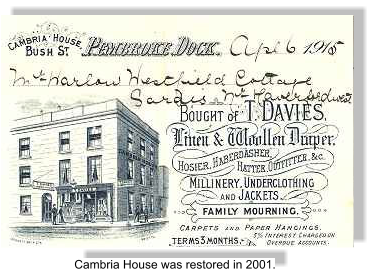 CAMBRIA HOUSE,
BUSH ST. PEMBROKE DOCK, Apl 6 1915
Mr Harlow Westfield Cottage
Sardis Nr Haverfordwest
BOUGHT OF T. DAVIES,
Linen & Woollen Draper,
HOSIER, HABERDASHER,
HATTER, OUTFITTER, &c.
MILLINERY, UNDERCLOTHING
AND JACKETS.
FAMILY MOURNING.
CARPETS AND PAPER HANGINGS.
TERMS 3 MONTHS. 5% INTEREST CHARGED ON
OVERDUE ACCOUNTS.
Cambria House was restored in 2001.